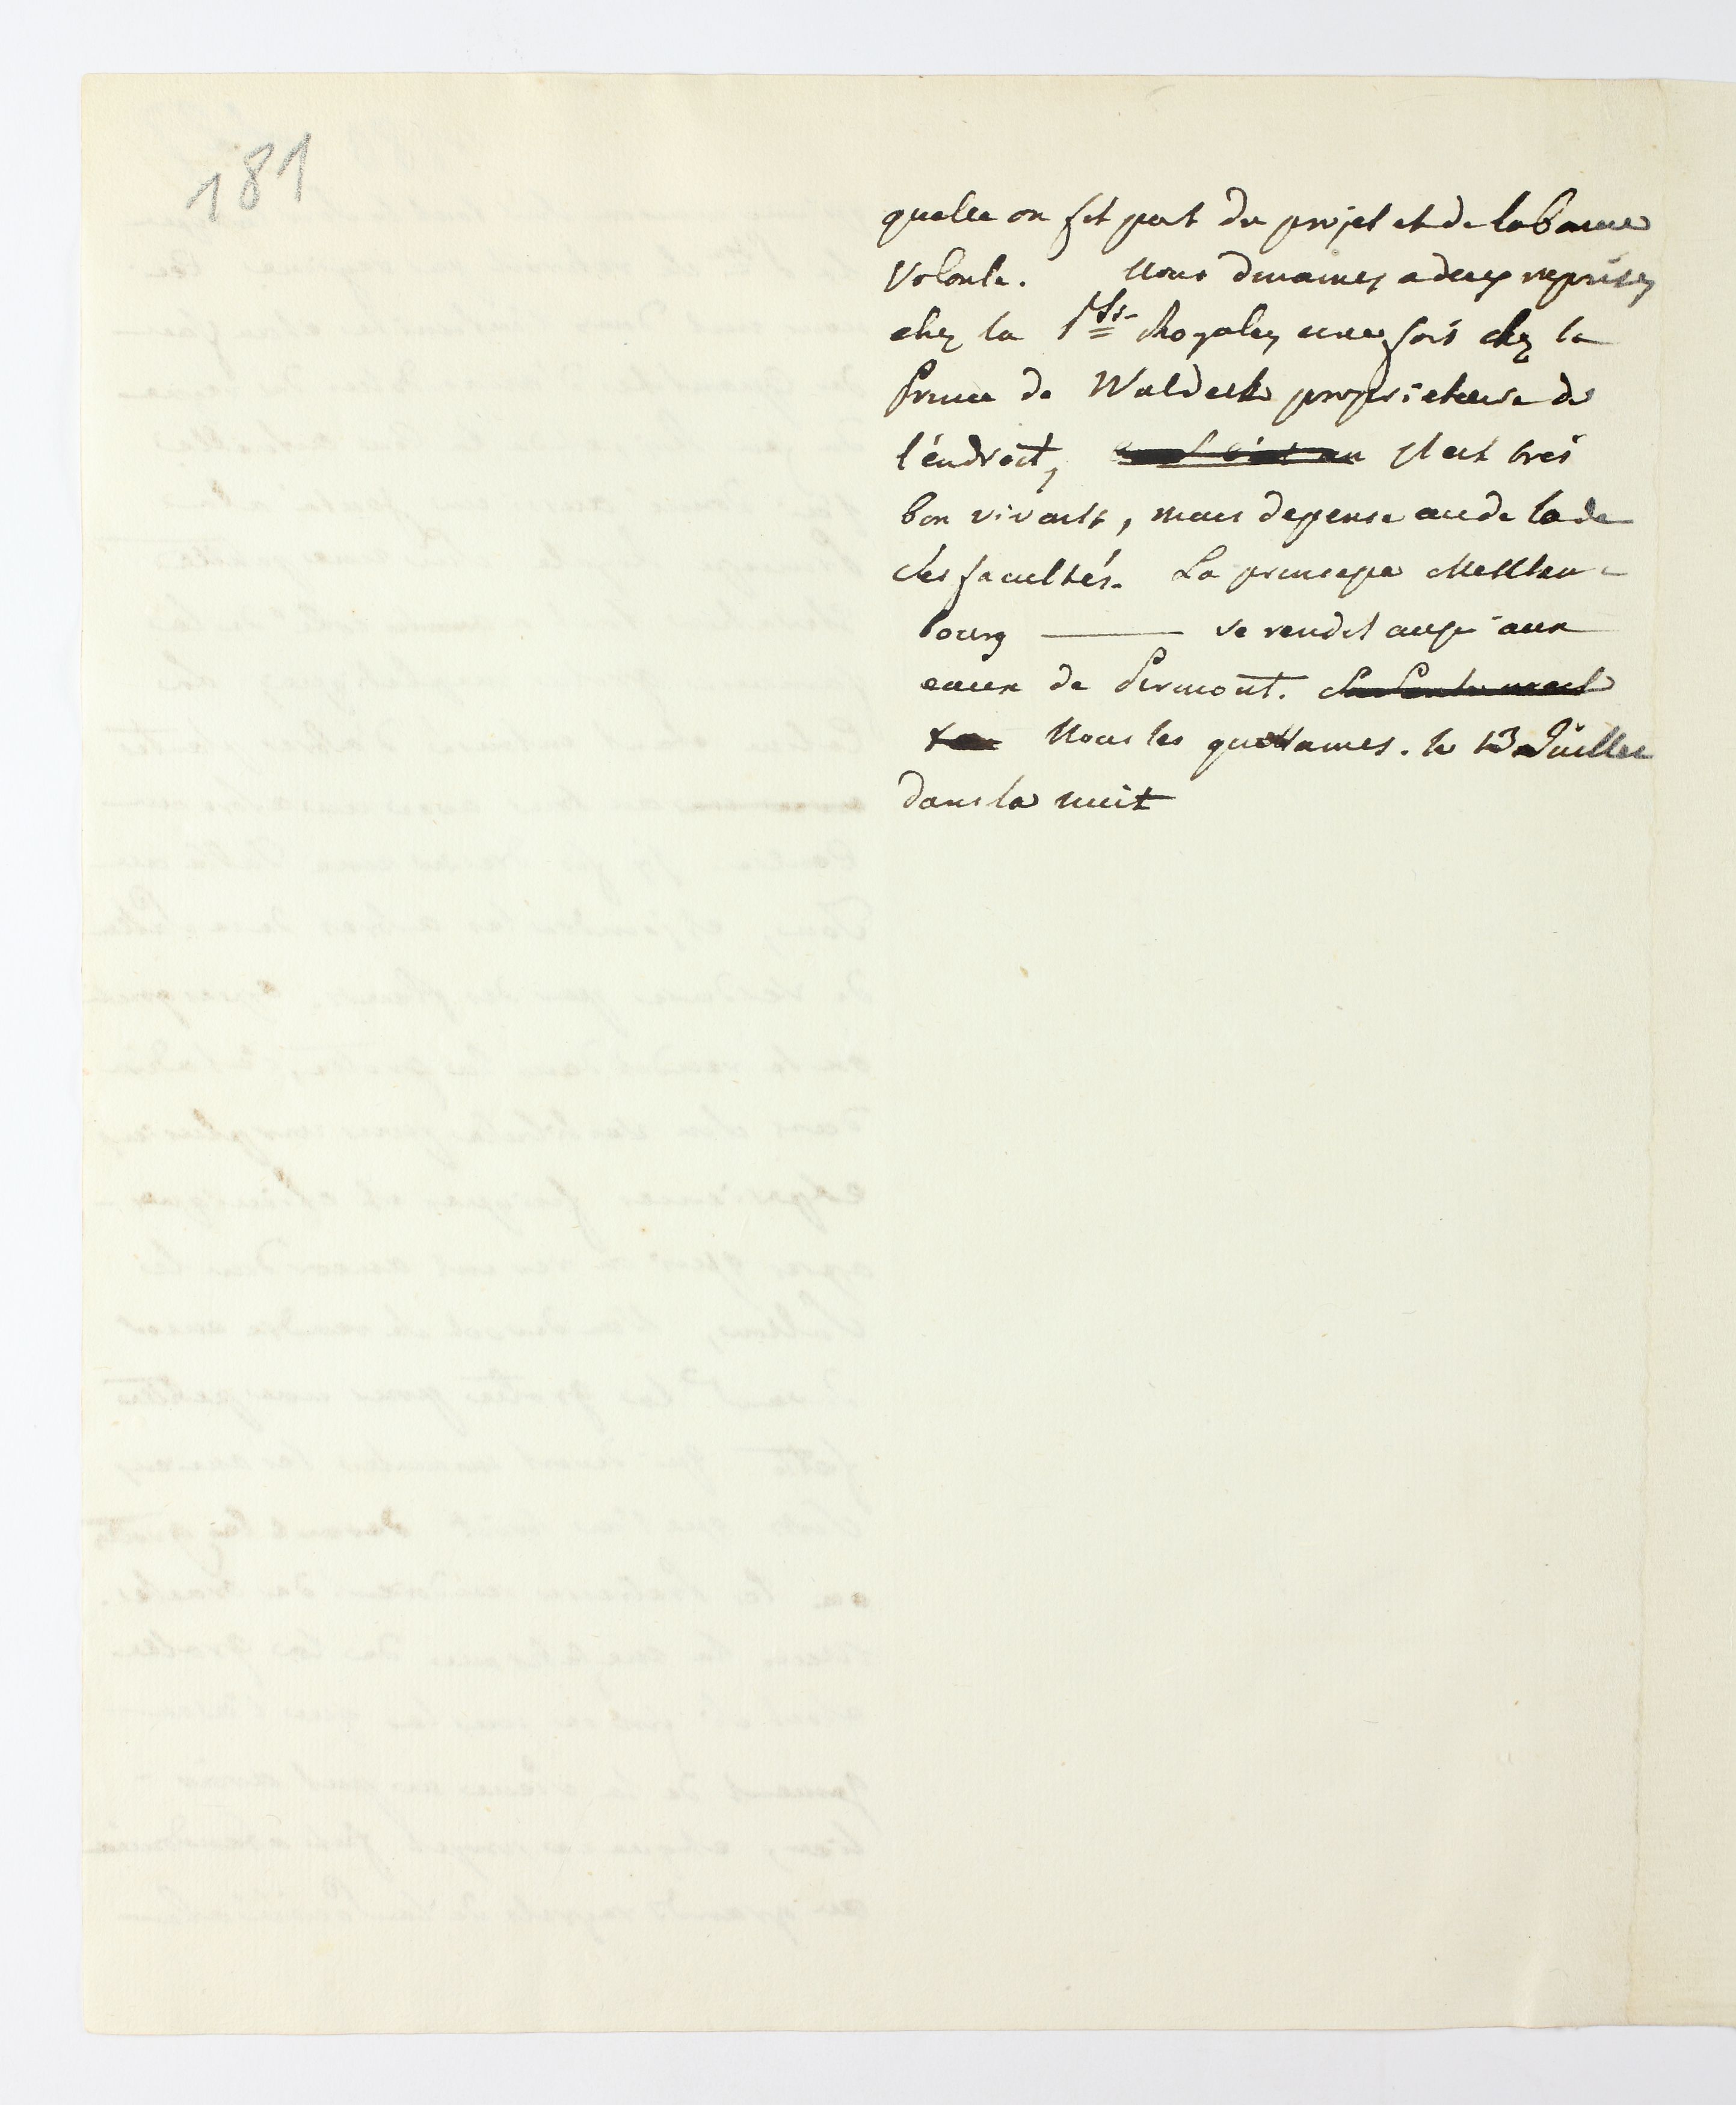 181
quelle on fit part du projet et de la bonne
Volonte. Nous dinames a deux reprises
chez la P^sse Royale, une fois chez le
Prince de Waldeck proprietaire de
l'éndroit, il est trés
bon vivant, mais depense au de la de
ses facultés. La princesse Mecklen-
bourg ——— se rendit aussi aux
eaux de Pirmont.
Nous les quittames. le 13 Juillet
dans la nuit